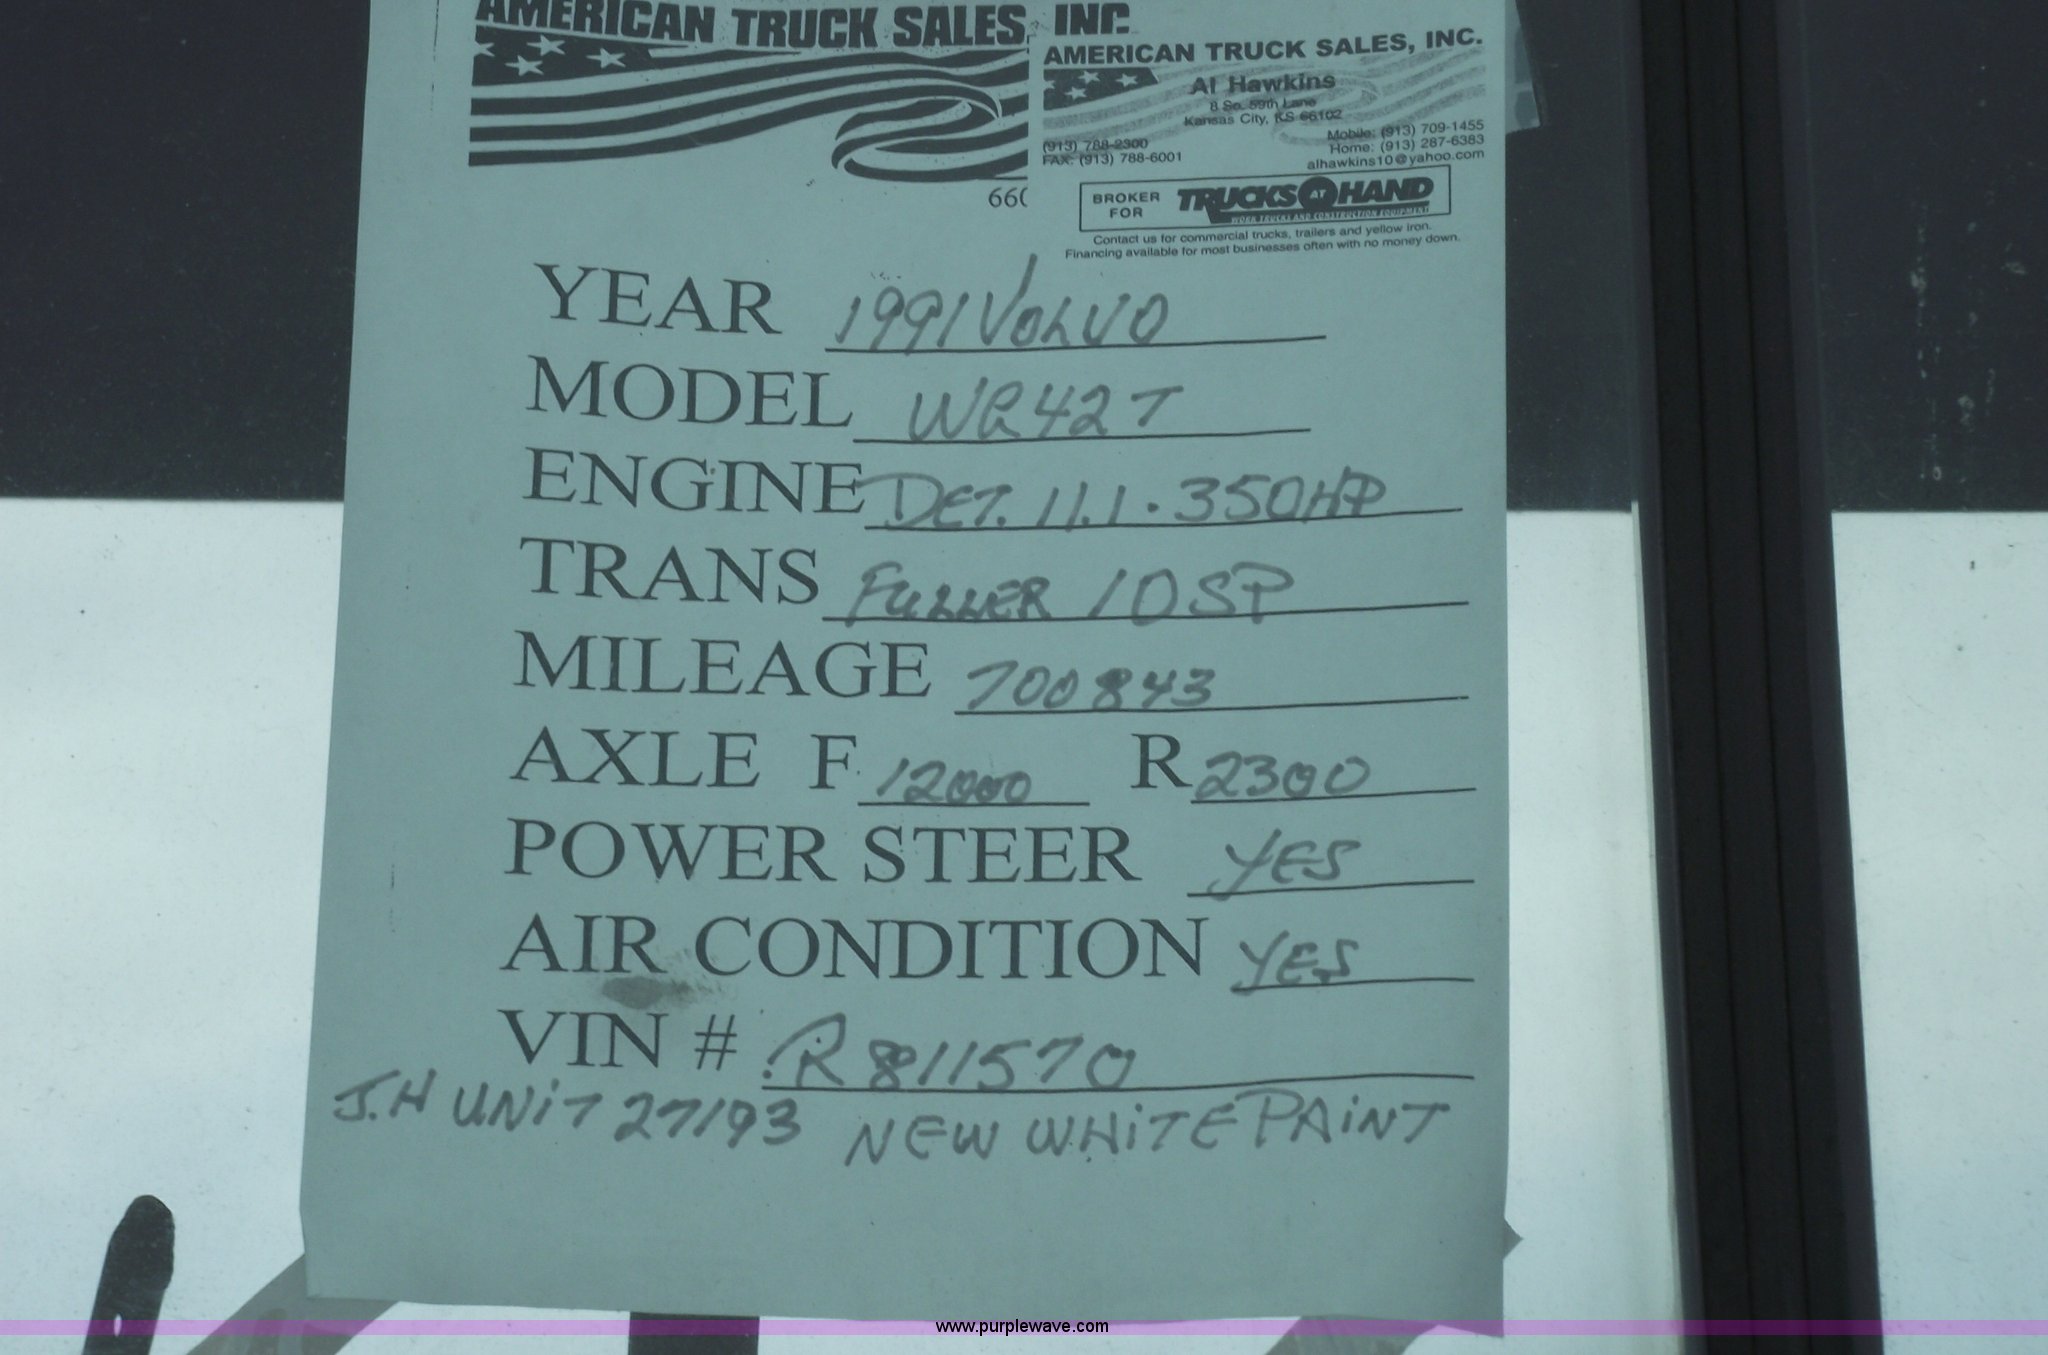 AMERICAN TRUCK SALES, INC.
AMERICAN TRUCK SALES, INC.
Al Hawkins
8 So. 59th Lane
Kansas City, KS 66102
(913) 788-2300
FAX: (913) 788-6001
Mobile: (913) 709-1455
Home: (913) 287-6383
alhawkins10@yahoo.com
660
BROKER FOR
TRUCKS AT HAND
WORK TRUCKS AND CONSTRUCTION EQUIPMENT
Contact us for commercial trucks, trailers and yellow iron.
Financing available for most businesses often with no money down.
YEAR 1991 VOLVO
MODEL WG42T
ENGINE DET. 11.1 . 350HP
TRANS FULLER 10SP
MILEAGE 700843
AXLE F 12000 R 2300
POWER STEER YES
AIR CONDITION YES
VIN # R811570
J.H UNIT 27193 NEW WHITE PAINT
www.purplewave.com